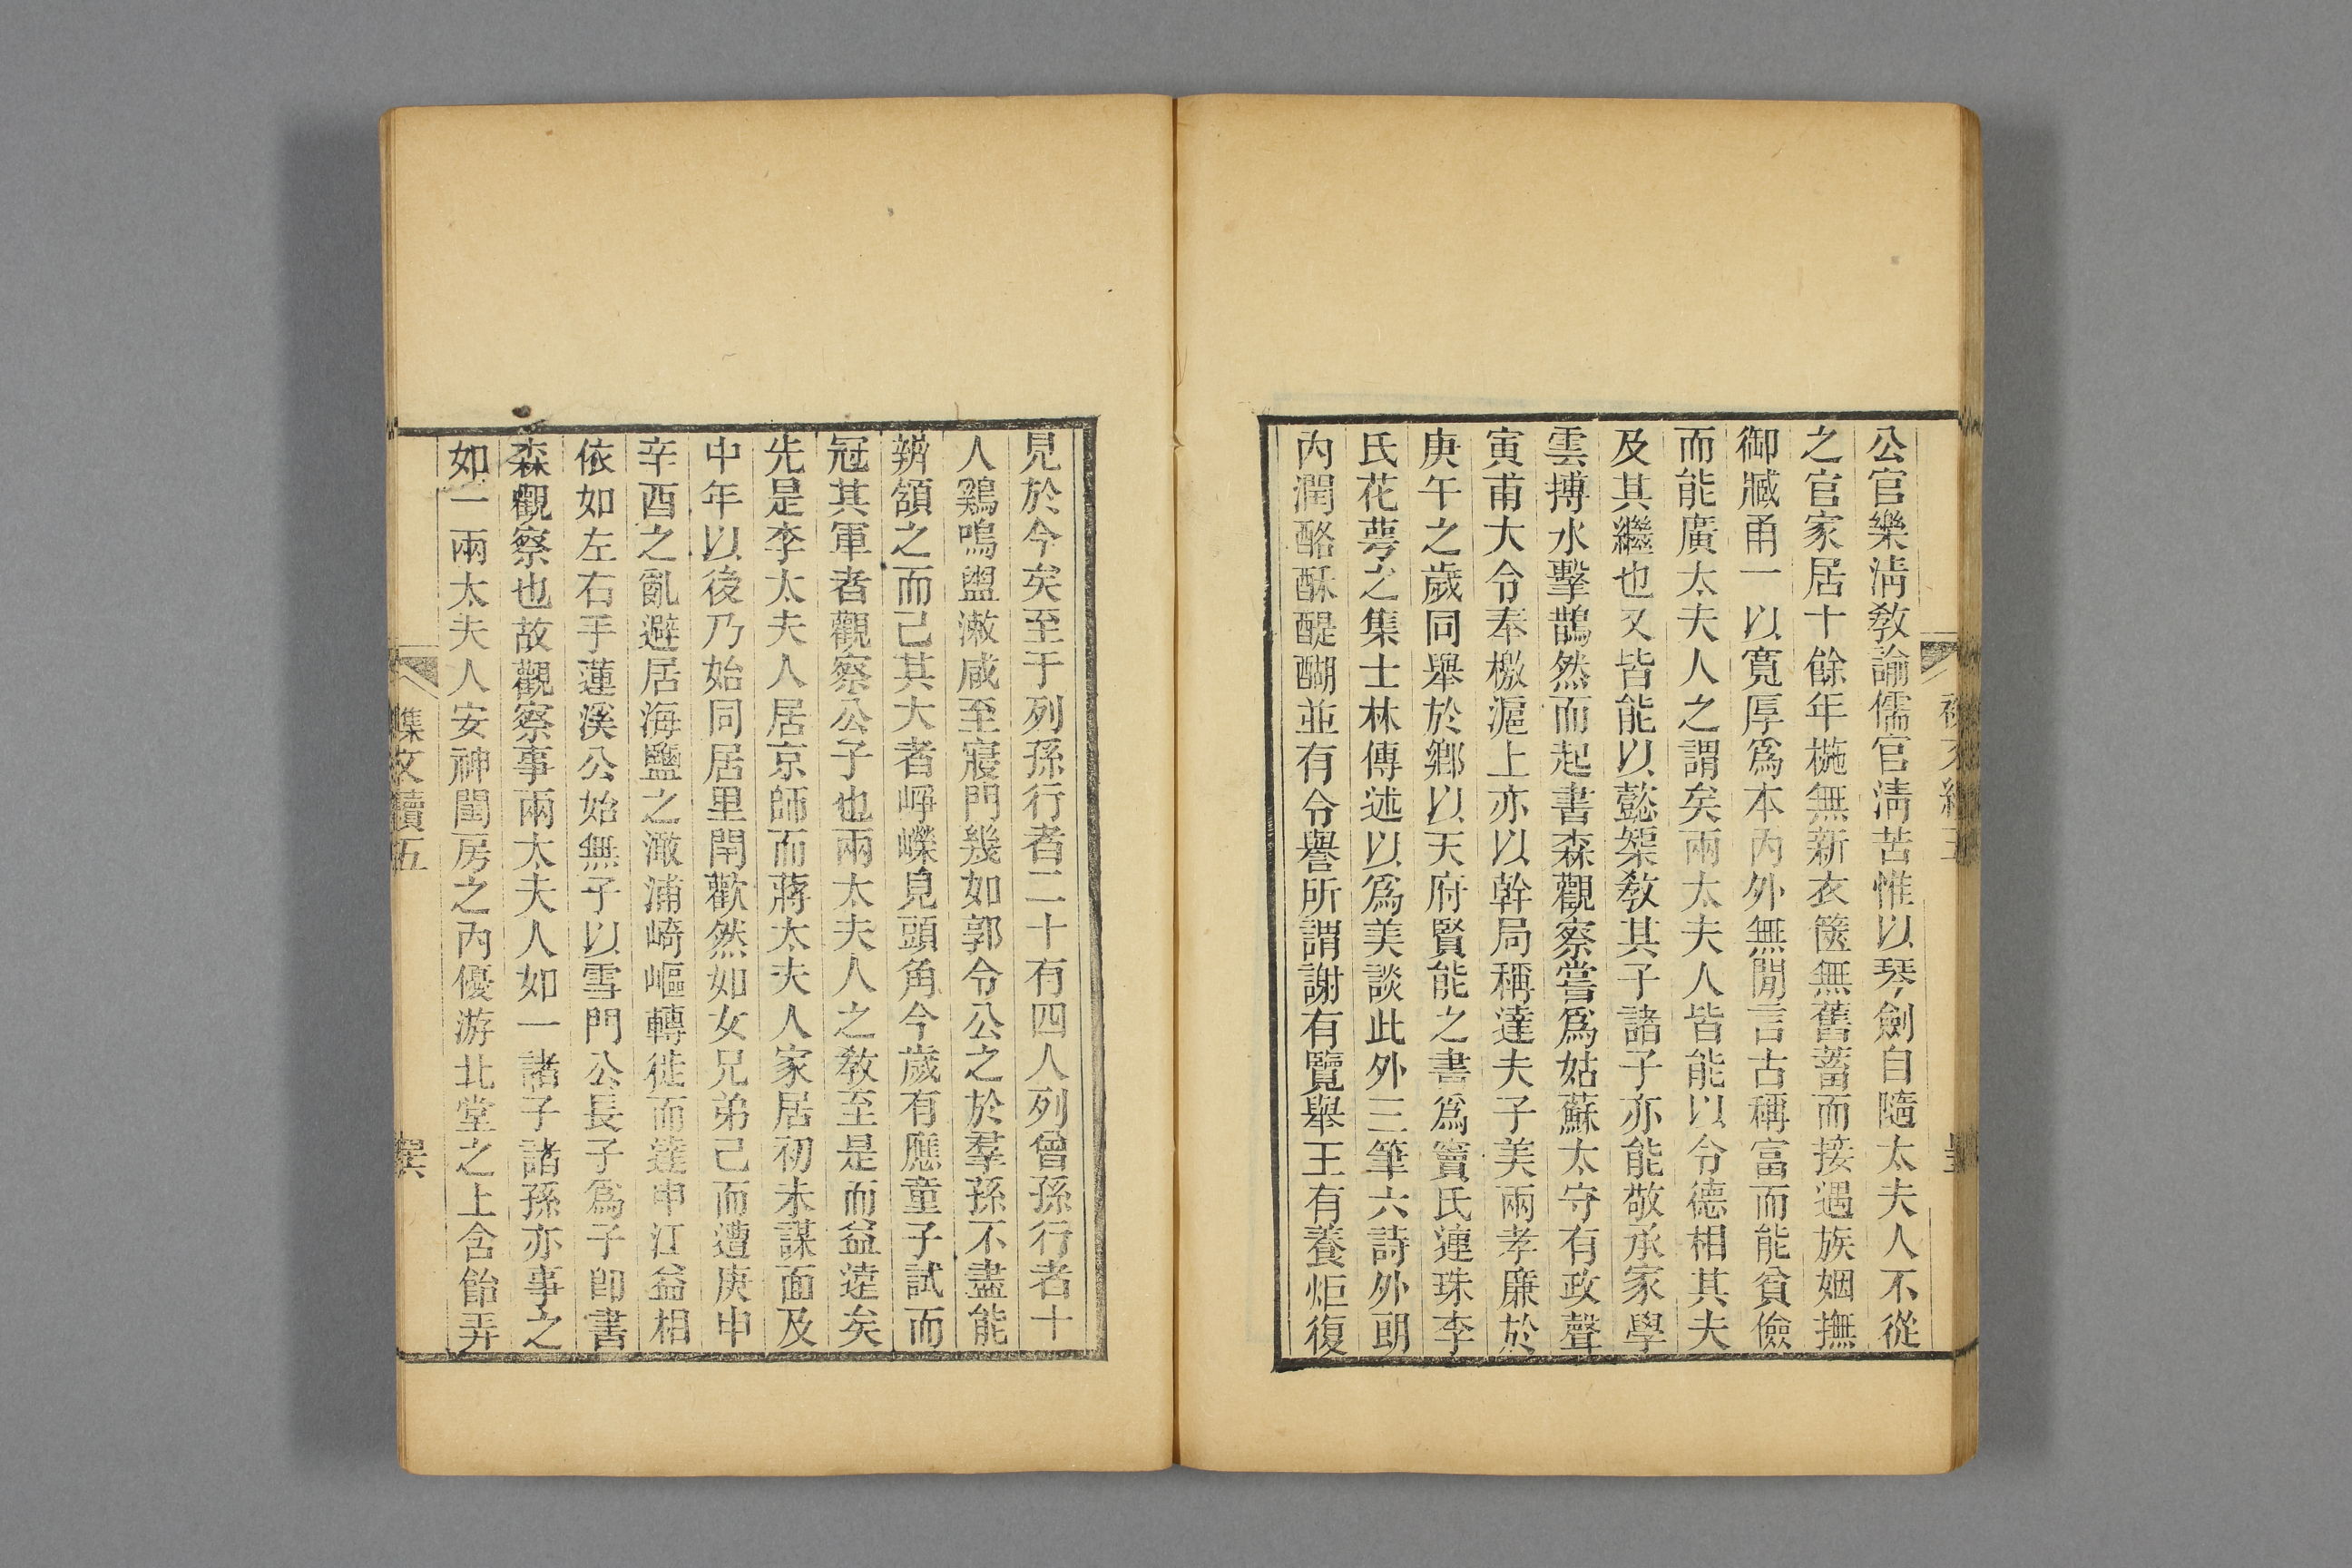 公官樂清教諭儒官清苦惟以琴劍自隨太夫人不從
之官家居十餘年椸無新衣篋無舊蓄而接遇族姻撫
御臧甬一以寬厚爲本內外無閒言古稱富而能貧儉
而能廣太夫人之謂矣兩太夫人皆能以令德相其夫
及其繼也又皆能以懿榘教其子諸子亦能敬承家學
雲摶水擊鵲然而起書森觀察嘗爲姑蘇太守有政聲
寅甫大令奉檄滬上亦以幹局稱達夫子美兩孝廉於
庚午之歲同舉於鄉以天府賢能之書爲竇氏連珠李
氏花萼之集士林傳述以爲美談此外三筆六詩外朗
內潤酪酥醍醐並有令譽所謂謝有覽舉王有養炬復
見於今矣至于列孫行者二十有四人列曾孫行者十
人鷄鳴盥漱咸至寢門幾如郭令公之於羣孫不盡能
辨頷之而已其大者崢嶸見頭角今歲有應童子試而
冠其軍者觀察公子也兩太夫人之教至是而益逵矣
先是李太夫人居京師而蔣太夫人家居初未謀面及
中年以後乃始同居里閈歡然如女兄弟已而遭庚申
辛酉之亂避居海鹽之澉浦崎嶇轉徙而達申江益相
依如左右手蓮溪公始無子以雪門公長子爲子卽書
森觀察也故觀察事兩太夫人如一諸子諸孫亦事之
如一兩太夫人安神閨房之內優游北堂之上含飴弄
文續五